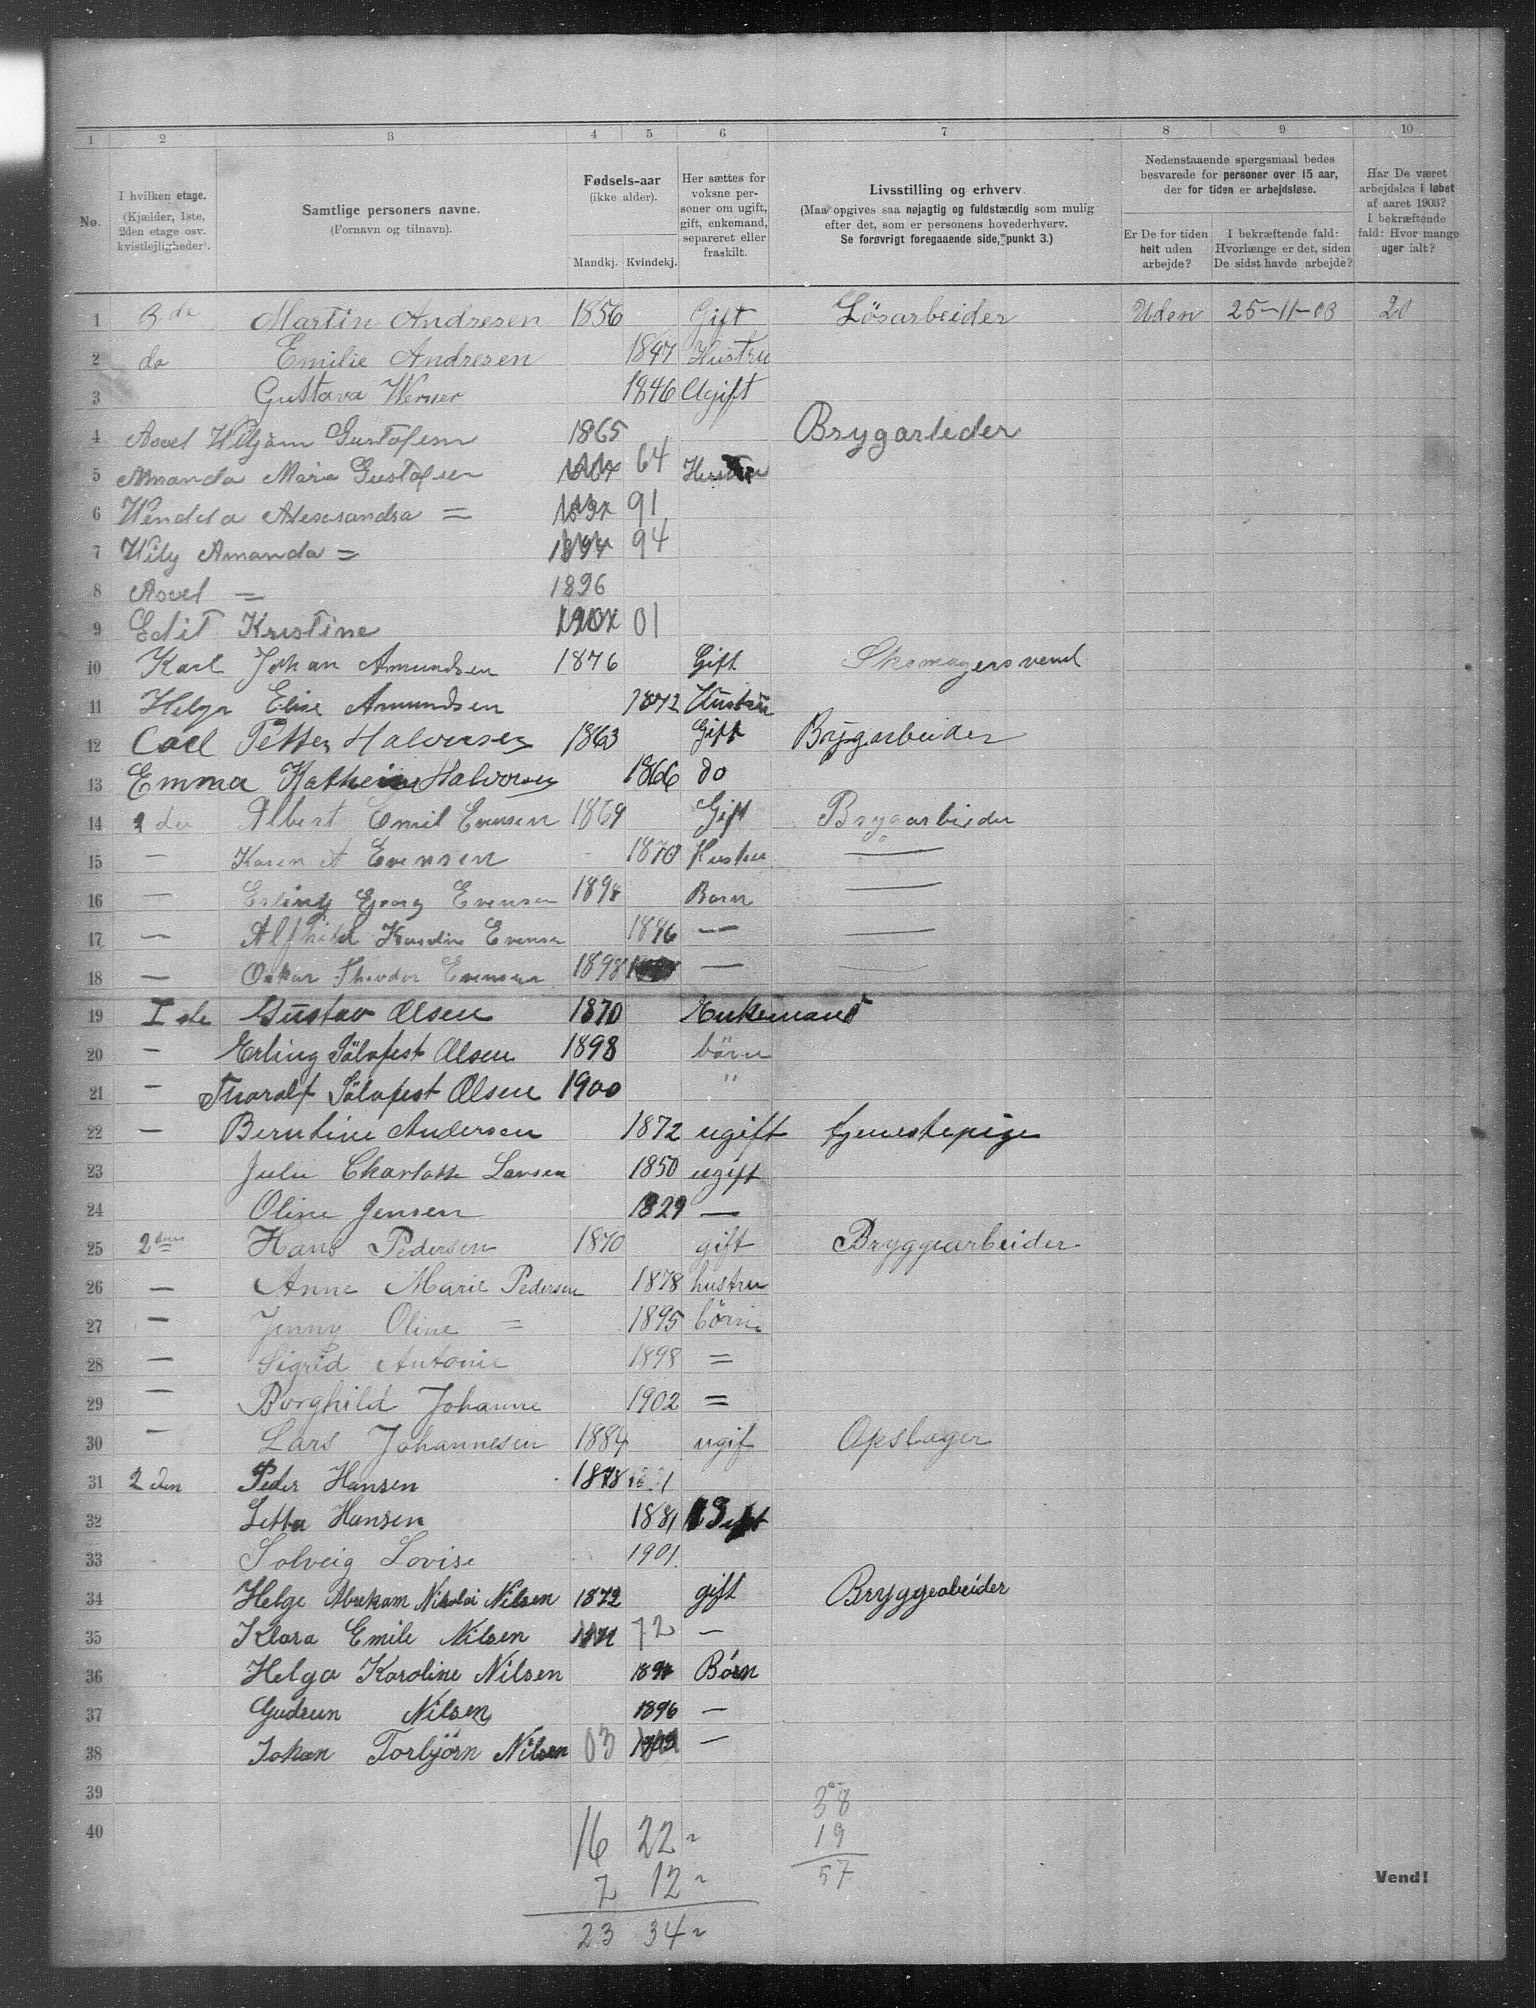 1 2 3 4 5 6 7 8 9 10
No.
I hvilken etage. (Kjælder, 1ste, 2den etage osv. kvistlejligheder).
Samtlige personers navne. (Fornavn og tilnavn).
Fødsels-aar (ikke alder). Mandkj. Kvindekj.
Her sættes for voksne personer om ugift, gift, enkemand, separeret eller fraskilt.
Livsstilling og erhverv. (Maa opgives saa nøjagtig og fuldstændig som mulig efter det, som er personens hovederhverv. Se forøvrigt foregaaende side, punkt 3.)
Nedenstaaende spørgsmaal bedes besvarede for personer over 15 aar, der for tiden er arbejdsløse.
Er De for tiden helt uden arbejde?
I bekræftende fald: Hvorlænge er det, siden De sidst havde arbejde?
Har De været arbejdsløs i løbet af aaret 1903? I bekræftende fald: Hvor mange uger ialt?
1 3 de Martin Andresen 1856 Gift Lösarbeider Uden 25-11-03 20
2 do Emilie Andresen 1847 Hustru
3 Gustava Werner 1846 Ugift
4 Axvel Wiljam Gustafsen 1865 Brygarbeider
5 Amanda Maria Gustafsen 64 Hustru
6 Wendela Alexsandra = 91
7 Wily Amanda = 94
8 Axvel = 1896
9 Edit Kristine 01
10 Karl Johan Amundsen 1876 Gift Skomagersvend
11 Helga Elise Amundsen 1872 Hustru
12 Carl Petter Halvorsen 1863 Gift Brygarbeider
13 Emma Kathrine Halvorsen 1866 do
14 2 den Albert Emil Evensen 1869 Gift Brygarbeider
15 — Karen A Evensen 1870 Hustru —
16 — Erling Georg Evensen 1894 Barn —
17 — Alfhild Kristine Evensen 1896 — —
18 — Oskar Theodor Evensen 1898 — —
19 I ste Gustav Olsen 1870 Enkemand
20 — Erling Sölvfest Olsen 1898 börn
21 — Thoralf Sölvfest Olsen 1900 "
22 — Berntine Andersen 1872 ugift tjenestepige
23 Julie Charlotte Larsen 1850 ugift
24 Oline Jensen 1829 —
25 2 den Hans Pedersen 1870 gift Bryggearbeider
26 — Anne Marie Pedersen 1878 hustru
27 — Jenny Oline = 1895 börn
28 — Sigrid Antonie 1898 =
29 — Borghild Johanne 1902 =
30 — Lars Johannesen 1884 ugif Opstager
31 2 den Peder Hansen 1878
32 Letta Hansen 1881 Gift
33 Solveig Lovise 1901
34 Helge Abraham Nikolai Nilsen 1872 gift Bryggeabeider
35 Klara Emile Nilsen 72 —
36 Helga Karoline Nilsen 1894 Börn
37 Gudrun Nilsen 1896 —
38 Johan Torbjörn Nilsen 03 —
39
40
16 22
7 12
23 34
38
19
57
Vend!